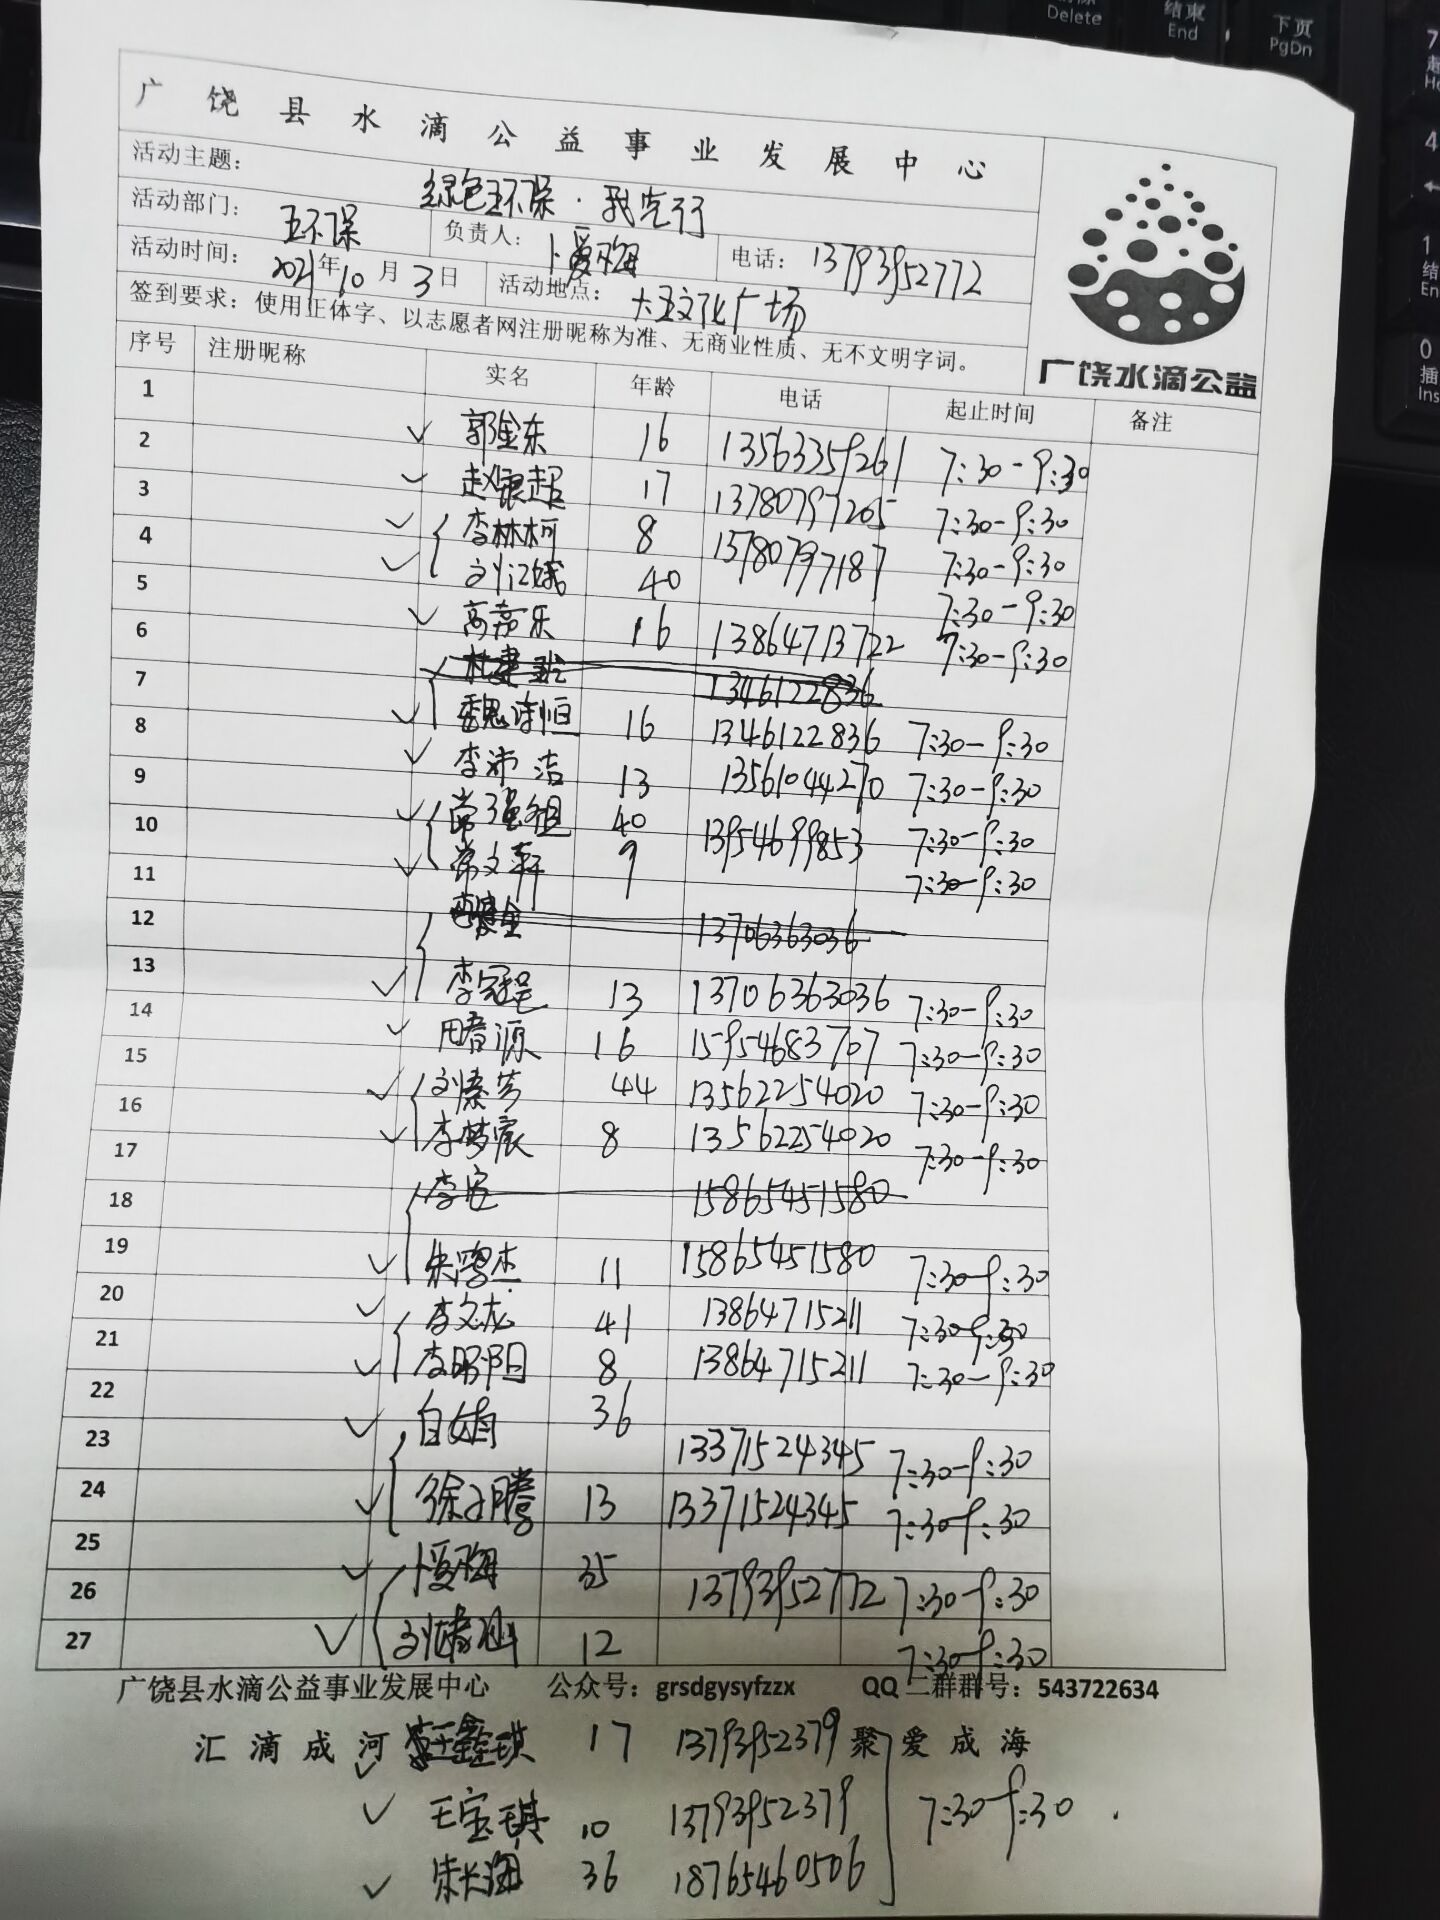 Delete
结束
End
下页
PgDn
广饶县水滴公益事业发展中心
活动主题: 绿色环保·我先行
活动部门: 环保 负责人: 卜爱海 电话: 13793952772
活动时间: 2021年10月3日 活动地点: 大王文化广场
签到要求: 使用正体字、以志愿者网注册昵称为准、无商业性质、无不文明字词。
广饶水滴公益
序号 注册昵称 实名 年龄 电话 起止时间 备注
1 郭金东 16 13563359261 7:30-9:30
2 赵银超 17 13780797205 7:30-9:30
3 李林柯 8 13780797187 7:30-9:30
4 刘江娥 40 7:30-9:30
5 高嘉乐 16 13864713722 7:30-9:30
6 1346122836
7 魏 恒 16 1346122836 7:30-9:30
8 李沛洁 13 13561044270 7:30-9:30
9 常强祖 40 13954699853 7:30-9:30
10 常文轩 9 7:30-9:30
11 13706363036
12 李冠程 13 13706363036 7:30-9:30
13 田春源 16 15954683707 7:30-9:30
14 刘素芳 44 13562254020 7:30-9:30
15 李梦宸 8 13562254020 7:30-9:30
16 李宏 15865451580
17
18 朱鸿杰 11 15865451580 7:30-9:30
19 李文龙 41 13864715211 7:30-9:30
20 李明阳 8 13864715211 7:30-9:30
21 白婧 36 13371524345 7:30-9:30
22
23 徐子腾 13 13371524345 7:30-9:30
24
25 卜爱海 35 13793952772 7:30-9:30
26 刘 12 7:30-9:30
27
广饶县水滴公益事业发展中心 公众号: grsdgysyfzzx QQ 二群群号: 543722634
汇滴成河 王鑫琪 17 13793952379 聚爱成海
王宝琪 10 13793952379 7:30-9:30
朱长海 36 18765460506